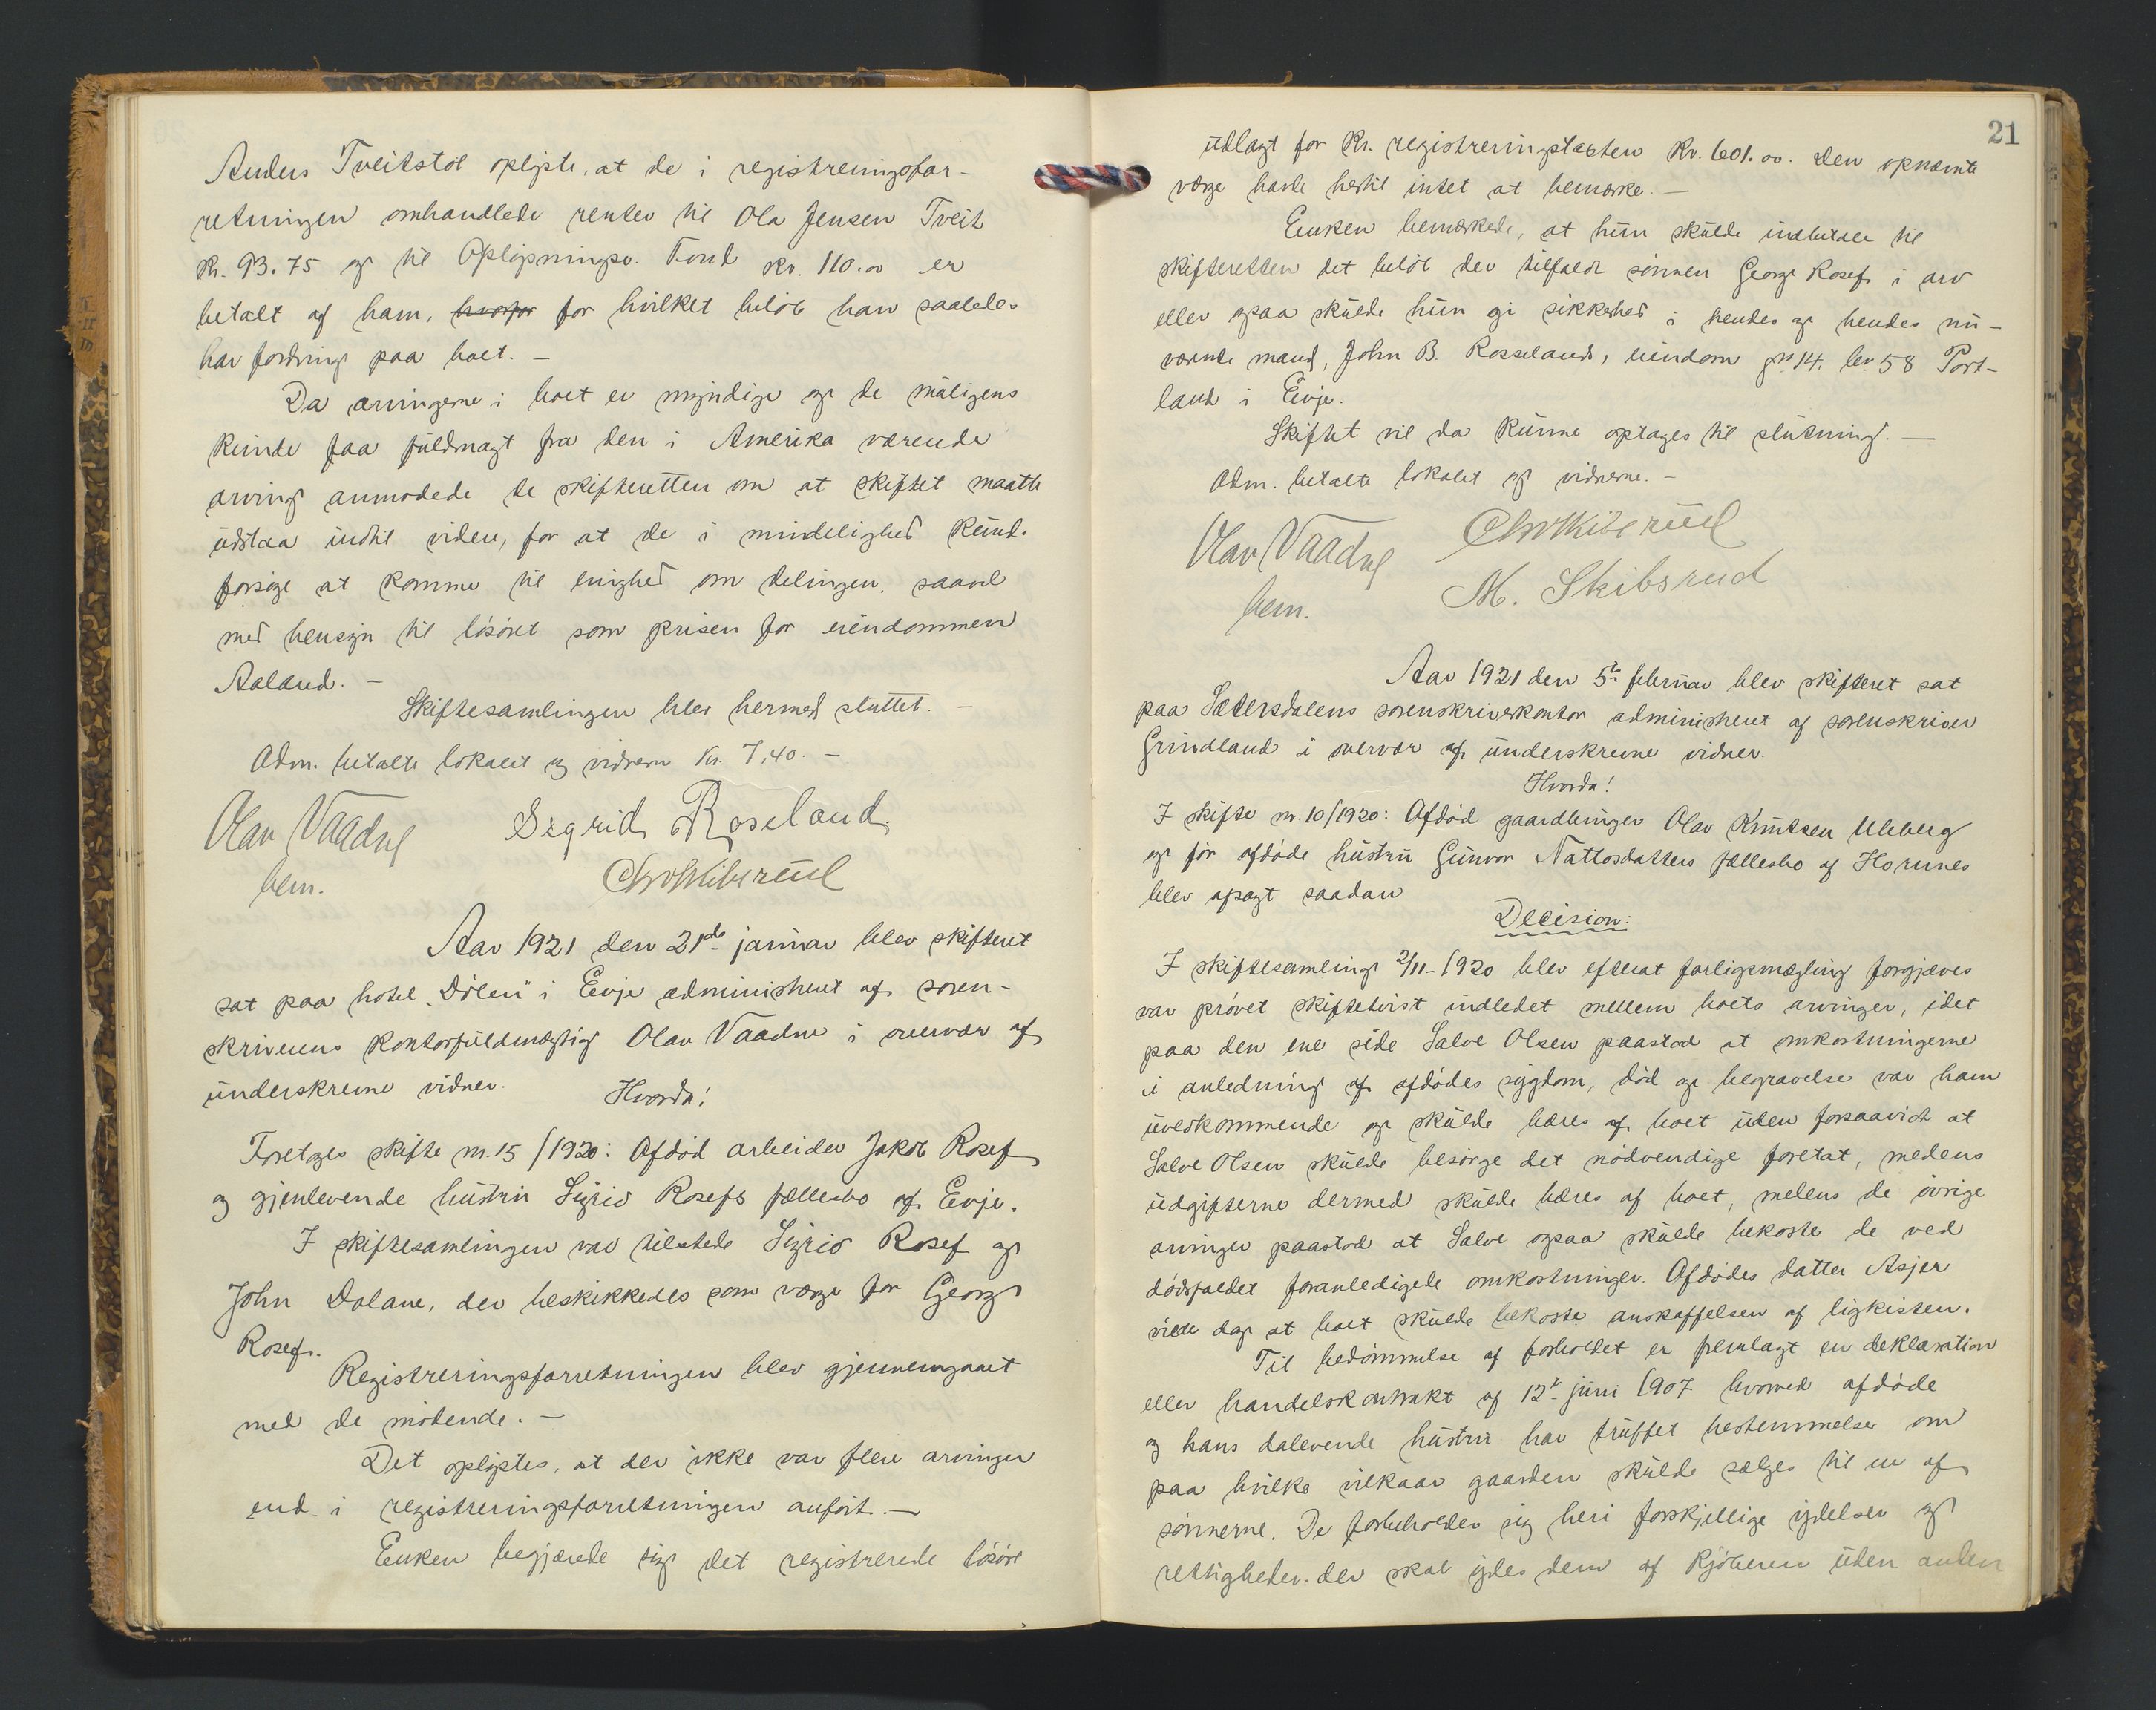 Anders Tveitstøl oplyste, at de i registreringsfor-
retningen omhandlede renter til Ola Jensen Tveit
kr. 93.75 og til Oplysningsv. Fond kr. 110.00 er
betalt af ham, hvorfor for hvilket beløb han saaledes
har fordring paa boet. —
Da arvingerne i boet er myndige og de muligens
kunde faa fuldmagt fra den i Amerika værende
arving anmodede de skifteretten om at skiftet maatte
udstaa indtil videre, for at de i mindelighed kunde
forsøge at komme til enighed om delingen, saavel
med hensyn til løsøret som prisen for eiendommen
Aaland. —
Skiftesamlingen blev hermed sluttet. —
Adm. betalte lokalet og vidnerne kr. 7,40. —
Olav Vaadne Sigrid Roseland
bem. Chr Skibsrud
Aar 1921 den 21de januar blev skifteret
sat paa hotel "Dølen" i Evje administreret af soren-
skriverens kontorfuldmægtig Olav Vaadne i overvær af
underskrevne vidner.
Hvorda!
Foretages skifte nr. 15/1920: Afdød arbeider Jakob Rosef
og gjenlevende hustru Sigrid Rosefs fællesbo af Evje.
I skiftesamlingen var tilstede Sigrid Rosef og
John Dolane, der beskikkedes som værge for Georg
Rosef.
Registreringsforretningen blev gjennemgaaet
med de mødende. —
Det oplystes, at der ikke var flere arvinger
end i registreringsforretningen anført. —
Enken begjærede sig det registrerede løsøre
21
udlagt for kr. registreringstaksten kr. 601.00. Den opnævnte
værge havde hertil intet at bemærke. —
Enken bemærkede, at hun skulde indbetale til
skifteretten det beløb der tilfaldt sønnen Georg Rosef i arv
eller ogsaa skulde hun gi sikkerhed i hendes og hendes nu-
værende mand, John B. Rosselands, eiendom gno 14. bno 58 Port-
land i Evje.
Skiftet vil da kunne optages til slutning. —
Adm. betalte lokalet og vidnerne. —
Olav Vaadne Chr Skibsrud
bem. M. Skibsrud
Aar 1921 den 5te februar blev skifteret sat
paa Sætersdalens sorenskriverkontor administreret af sorenskriver
Grundland i overvær af underskrevne vidner.
Hvorda!
I skifte nr. 10/1920: Afdød gaardbruger Olav Knutsen Uleberg
og før afdøde hustru Gunvor Nattosdatters fællesbo af Hornnes
blev afsagt saadan
Decision:
I skiftesamling 2/11-1920 blev efterat forligsmægling forgjæves
var prøvet skiftetvist indledet mellem boets arvinger, idet
paa den ene side Salve Olsen paastod at omkostningerne
i anledning af afdødes sygdom, død og begravelse var ham
uvedkommende og skulde bæres af boet uden forsaavidt at
Salve Olsen skulde besørge det nødvendige foretat, medens
udgifterne dermed skulde bæres af boet, medens de øvrige
arvinger paastod at Salve ogsaa skulde bekoste de ved
dødsfaldet foranledigede omkostninger. Afdødes datter Asjer
vilde dog at boet skulde bekoste anskaffelsen af ligkisten.
Til bedømmelse af forholdet er fremlagt en deklaration
eller handelskontrakt af 12te juni 1907 hvorved afdøde
og hans dalevende hustru har truffet bestemmelser om
paa hvilke vilkaar gaarden skulde sælges til en af
sønnerne. De forbeholder sig heri forskjellige ydelser og
rettigheder, der skal ydes dem af kjøberen uden anden